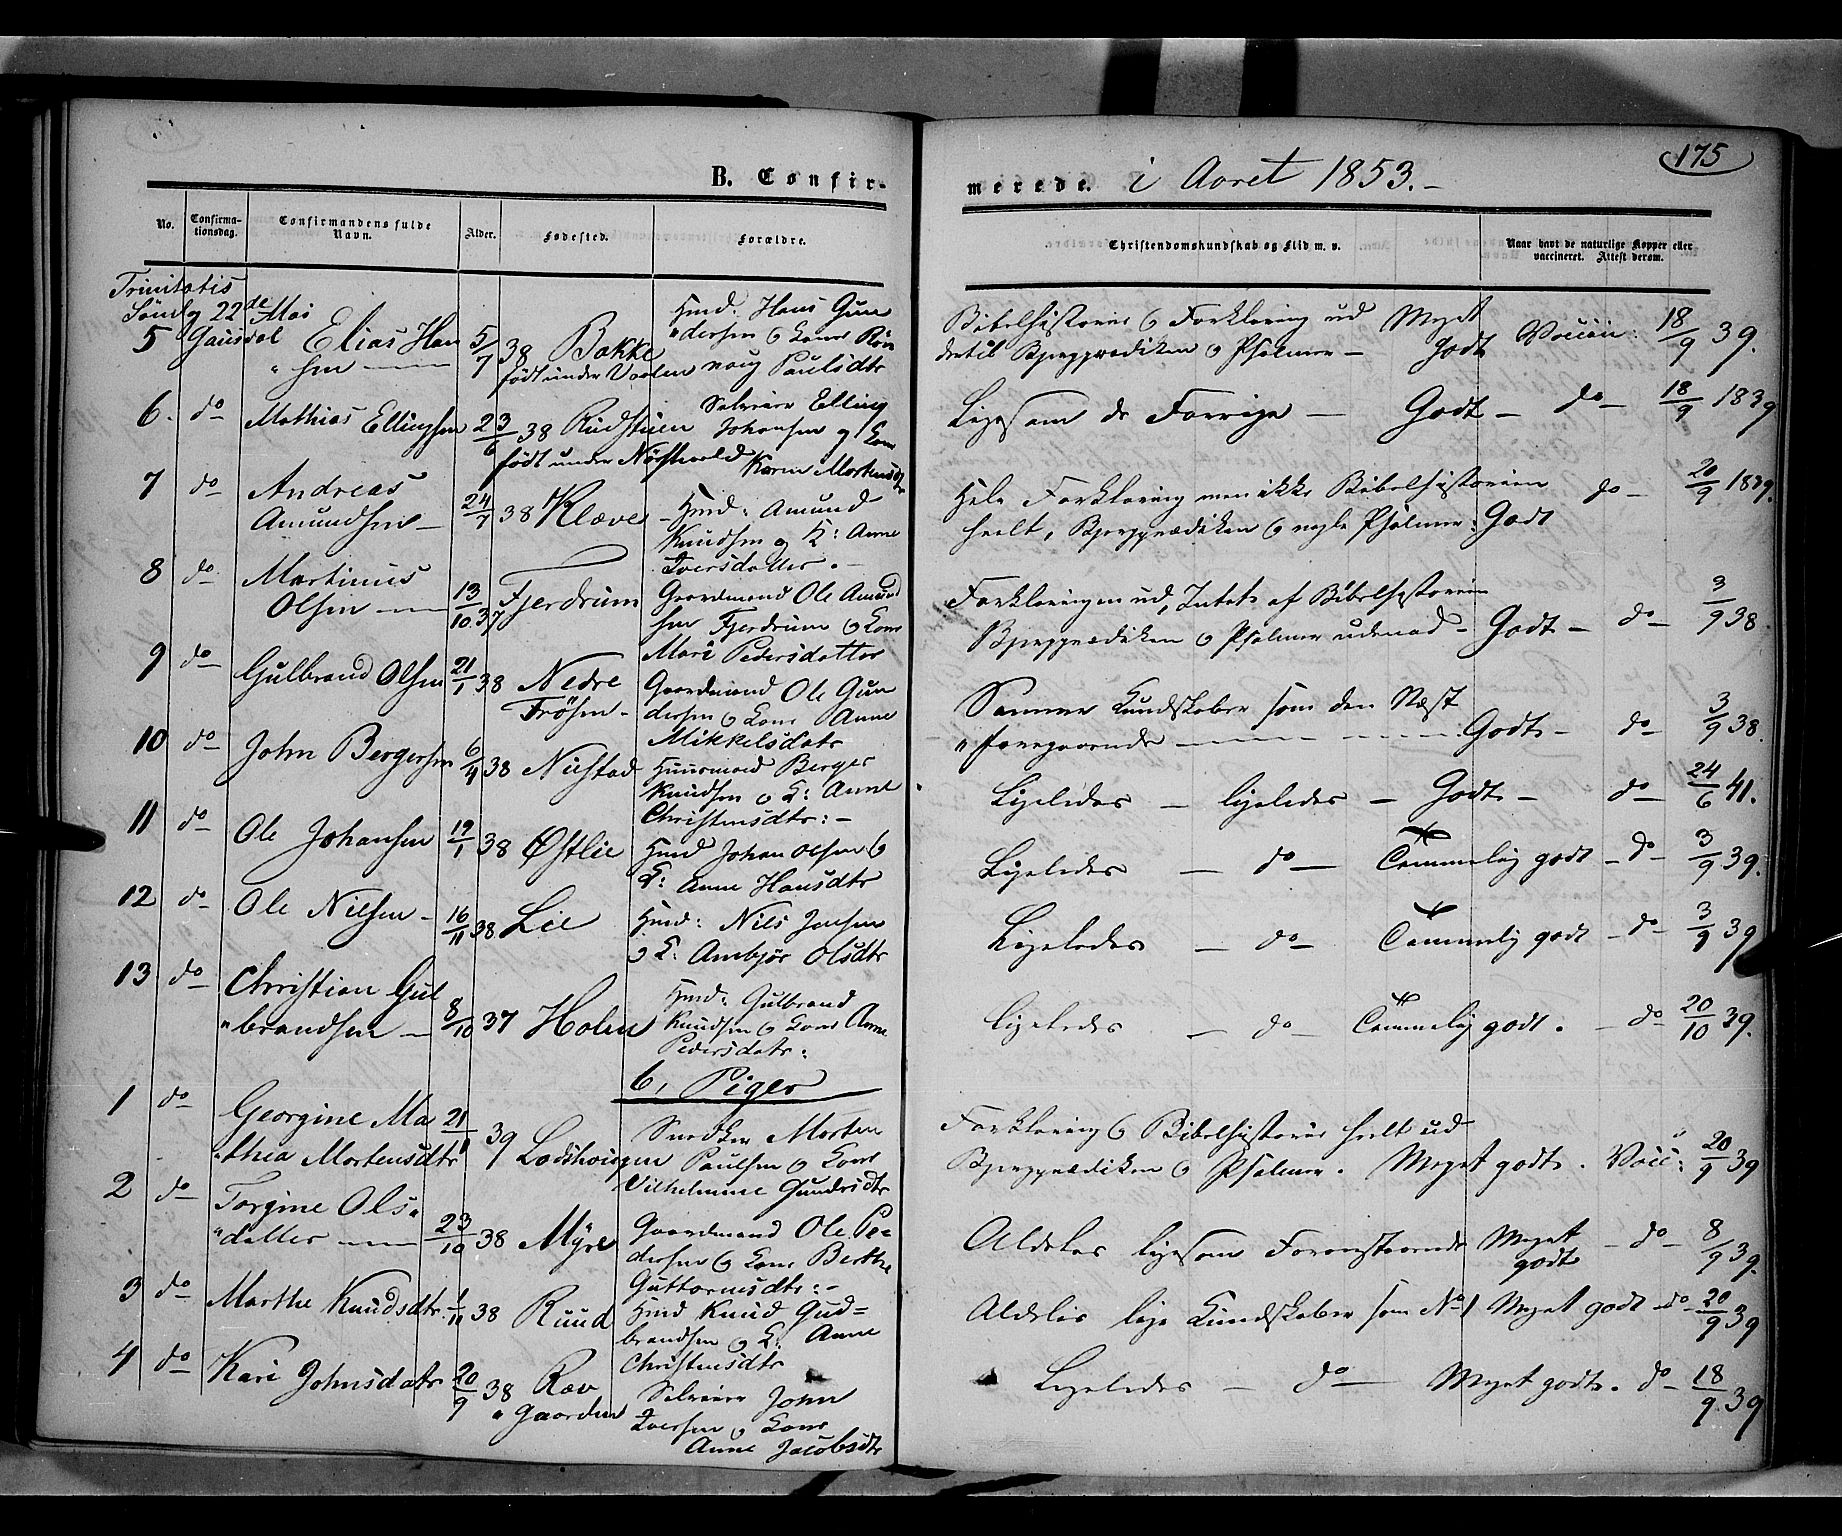 B. Confir-
merede. i Aaret 1853.-
175
No.
Confirma-
tionsdag.
Confirmandens fulde
Navn.
Alder.
Fødested.
Forældre.
Christendomskundskab og Flid m. v.
Naar havt de naturlige Kopper eller
vaccineret. Attest derom.
Trinitatis
Sønd 22de Mai
5 Gausdal Elias Han
" sen 5/7 38 Bakke
født under
Hmd: Hans Gun
dersen & Kone Røn
naug Paulsdtr
Bibelhistorie & Forklaring ud
dertil Bjergprædiken & Psalmer - Meget
Godt Vaccin: 18/9 39.
6. do Mathias Ellingsen 23/6 38 Rudstuen
født under
Selveier Elling
Johansen og Kone
Karen Mortensdtr
Ligesom de Forrige - Godt - do - 18/9 1839
7 do Andreas
Amundsen - 24/7 38 Kleve
Hmd: Amund
Knudsen og K: Anne
Iversdatter. -
Hele Forklaring men ikke Bibelhistorien
heelt, Bjergprædiken & nogle Psalmer: Godt do - 20/9 1839.
8 do Martinus
Olsen 13/10 37 Fjerdrum
Gaardmand Ole Amund
sen Fjerdrum & Kone
Mari Pedersdatter
Forklaringen ud, Intet af Bibelhistorien
Bjergprædiken & Psalmer udenad - Godt - do - 3/9 38.
9 do Gulbrand Olsen 21/1 38 Nedre
Frøsen -
Gaardmand Ole Gun
dersen & Kone Anne
Mikkelsdatr
Samme Kundskaber som den Næst
" foregaaende Godt - do - 3/9 38.
10 do John Bergersen 6/4 38 Nustad
Huusmand Berger
Knudsen & K: Anne
Christensdtr: -
Ligeledes - ligeledes - Godt - do - 24/6 41.
11 do Ole Johansen 19/1 38 Østlie
Hmd Johan Olsen &
K: Anne Hansdtr
Ligeledes - do - Temmelig godt - do - 3/9 39.
12 do Ole Nilsen - 16/11 38 Lie
Hmd: Nils Jensen
& K: Ambjør Olsdtr
Ligeledes - do - Temmelig godt - do - 3/9 39
13 do Christian Gul
" brandsen - 8/10 37 Holen
Hmd: Gulbrand
Knudsen & Kone Anne
Pedersdatr:
Ligeledes - do - Temmelig godt. - do - 20/10 39.
b, Piger
1 do Georgine Ma
" thea Mortensdtr 39
Snedker Morten
Paulsen & Kone
Vilhelmine
Forklaring & Bibelhistorie heelt ud
Bjergprædiken & Psalmer. Meget godt. Vacc: 20/9 39
2 do Torgine Ols"
" datter 23/10 38 Myre
Gaardmand Ole Pe-
dersen & Kone Berthe
Guttormsdtr: -
Aldeles ligesom Foranstaaende Meget
godt - do - 8/9 39.
3 do Marthe Knudsdtr. 1/11 38 Ruud
Hmd Knud Gud=
brandsen & K: Anne
Christensdtr
Aldeles lige Kundskaber som No 1 Meget godt - do - 20/9 39
4 do Kari Johnsdatr 20/9 38 Ræv
" Gaarden
Selveier John
Iversen & Kone
Anne Jacobsdtr
Ligeledes - do - Meget godt. do - 18/9 39